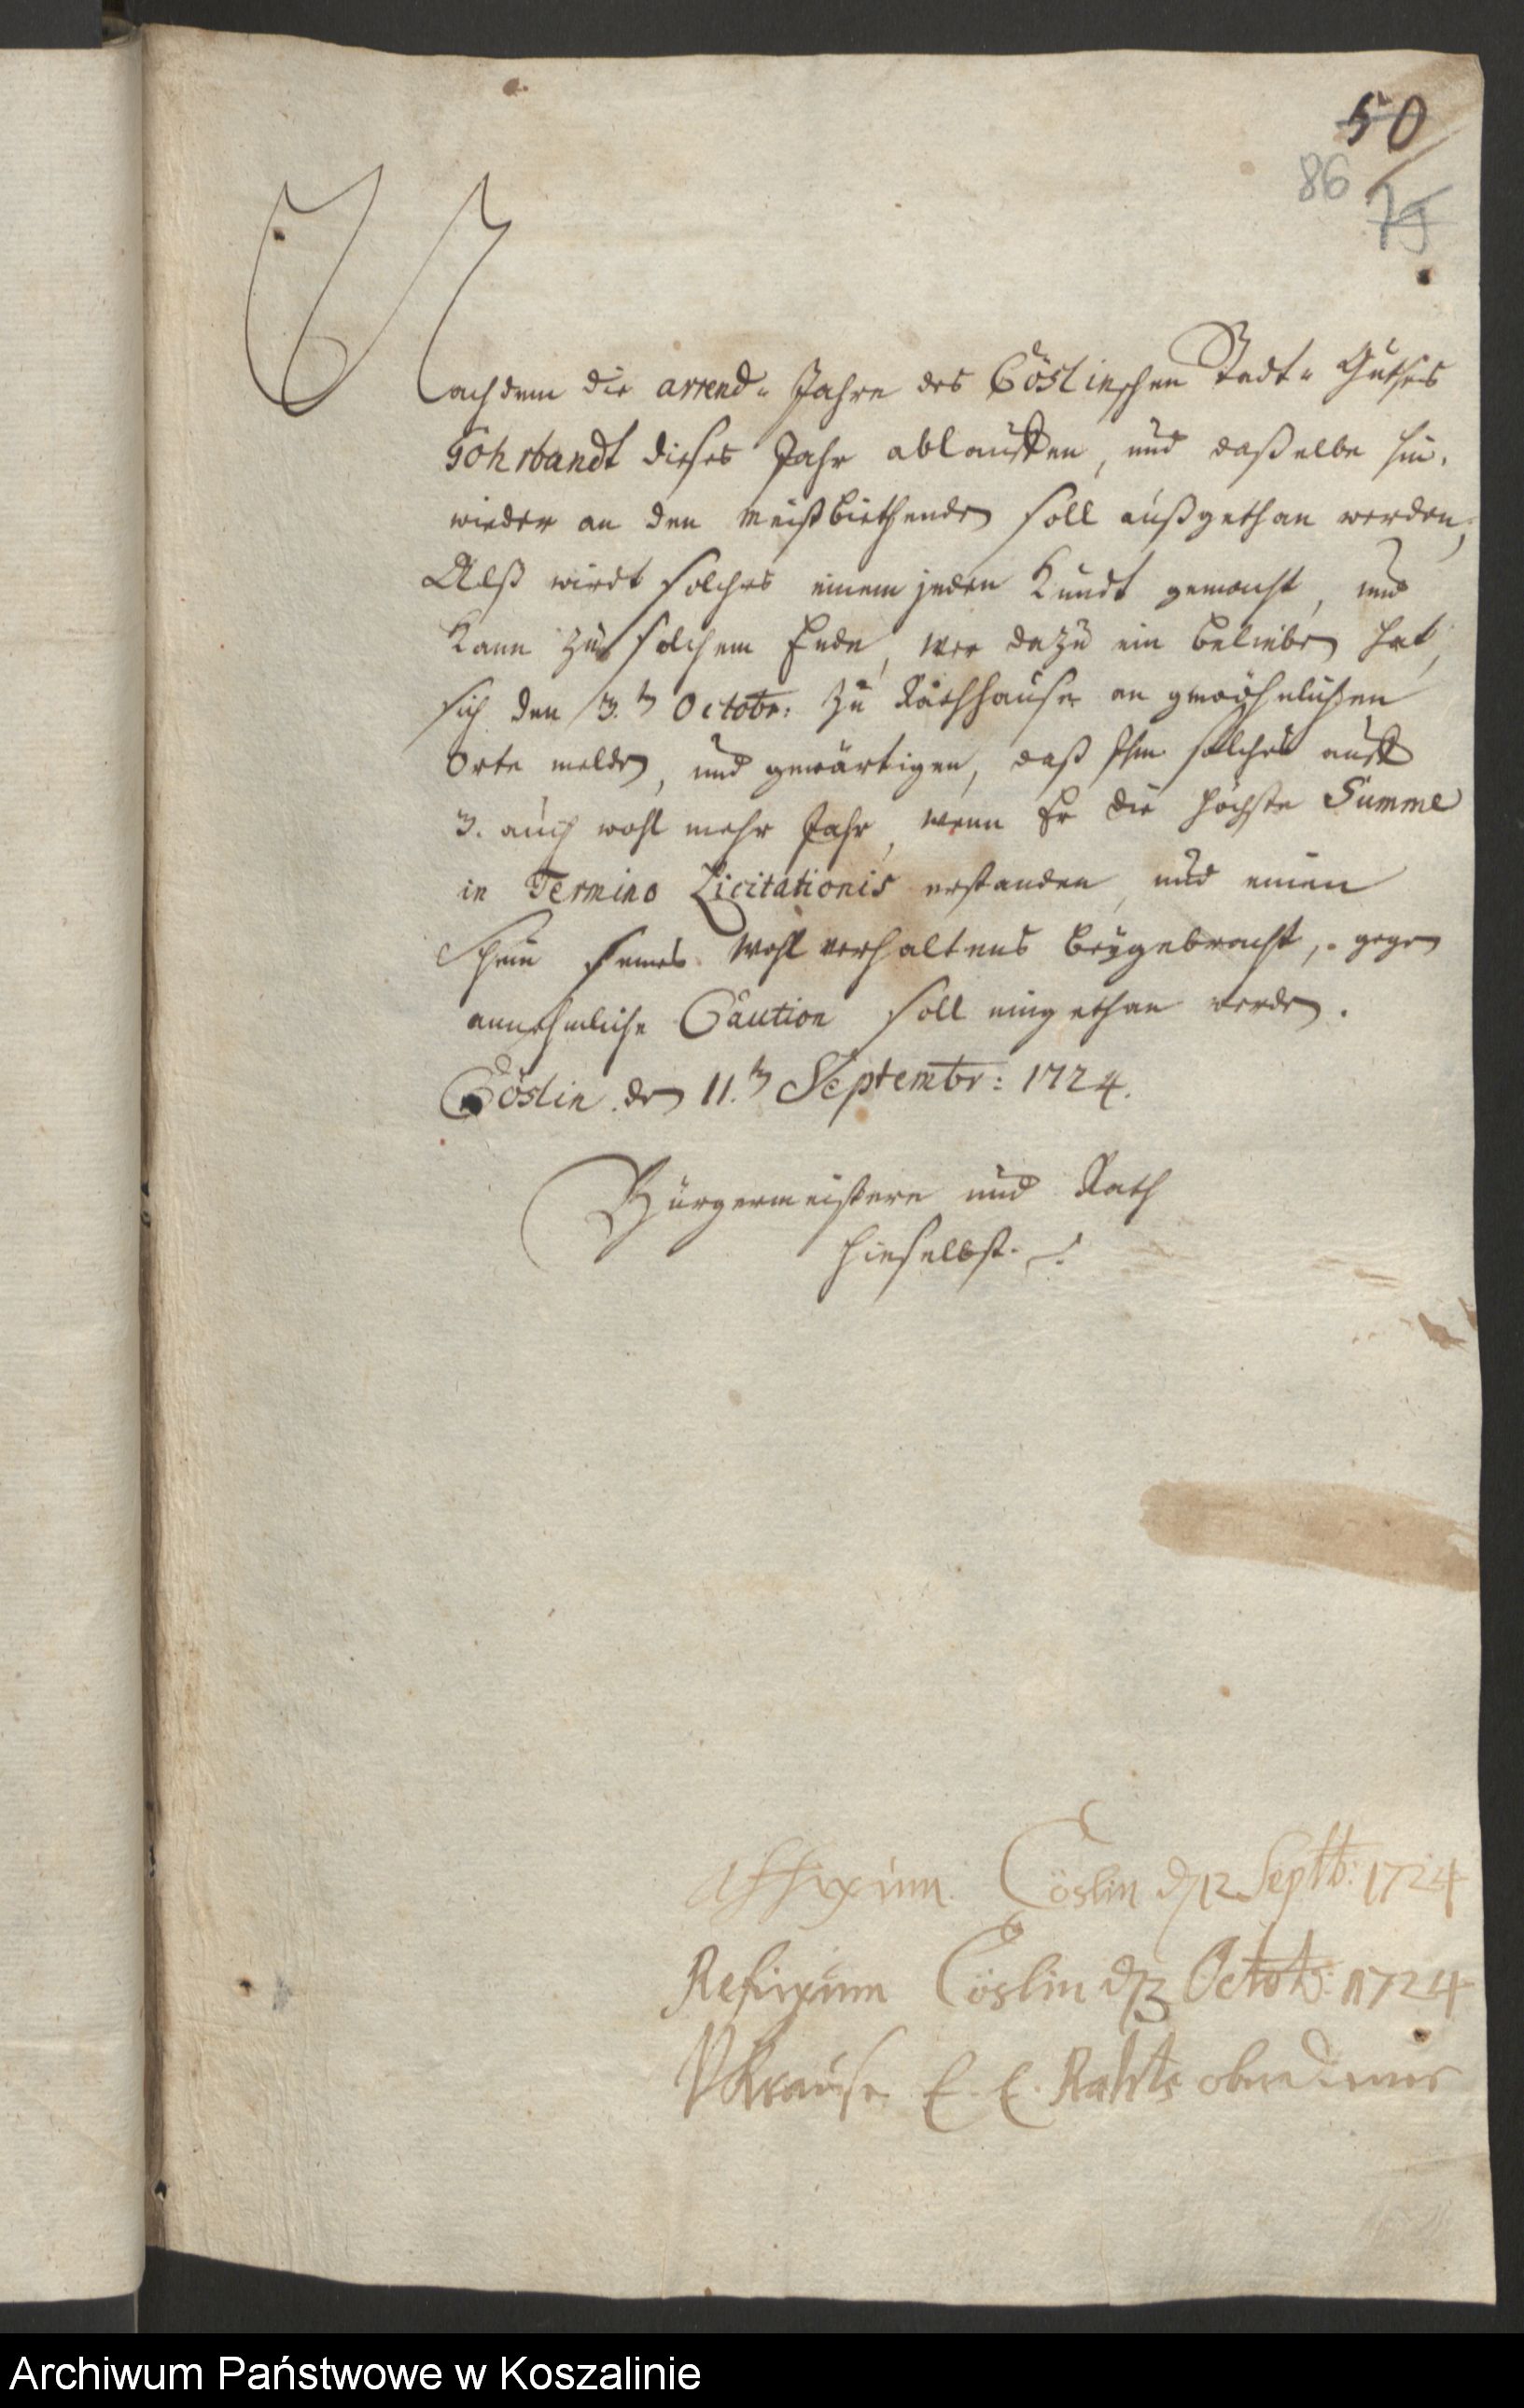 50
86
75
Nachdem die arrend- Jahre des Cöslinschen Stadt- Guthes
Gohrbandt dieses Jahr ablauffen, und daßelbe hin-
wieder an den meistbiethenden soll außgethan werden,
Alß wirdt solches einem jeden Kundt gemacht, und
Kann zu solchem Ende, wer dazu ein belieben hat,
sich den 3.ten Octobr: zu Rathhause an gewöhnlichen
Orte melden, und gewärtigen, daß Ihm solches auff
3. auch wohl mehr Jahr, wenn Er die höchste Summe
in Termino Licitationis erstanden, und einen
Schein seines Wohlverhaltens beygebracht, gegen
annehmliche Caution soll eingethan werden.
Cöslin den 11.ten Septembr: 1724.
Bürgermeistere und Rath
hieselbst.
Affixum Cöslin d 12 Septb: 1724
Refixum Cöslin d 3 Octob: 1724
Krause E. E. Rahts
Archiwum Państwowe w Koszalinie